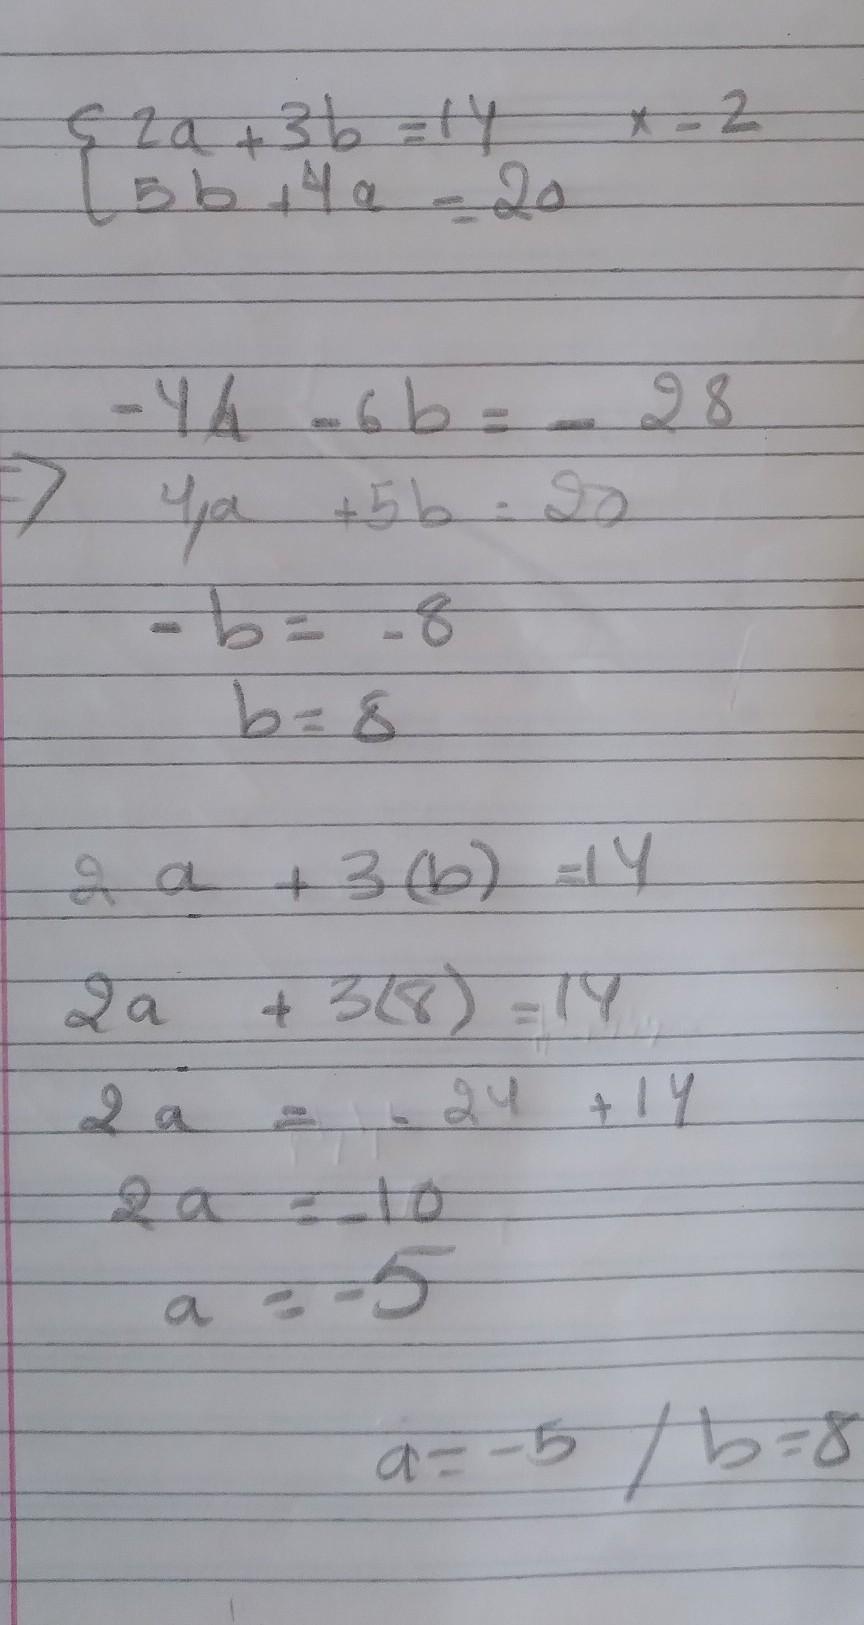 { 2a + 3b = 14 × -2
5b + 4a = 20
-4a -6b = - 28
=> 4a +5b = 20
- b = -8
b = 8
2 a + 3(b) = 14
2a + 3(8) = 14
2a = - 24 + 14
2a = -10
a = -5
a = -5 / b = 8